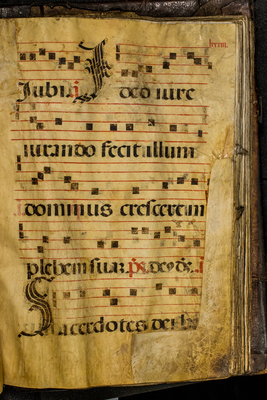 Iubi. Ideo iure
iurando fecit illum
dominus crescere in
plebem suam. ps. deo de.
Sacerdotes dei b